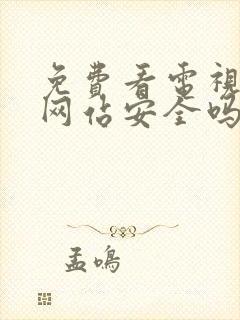 免費看電視
网佔安全吗
孟鳴